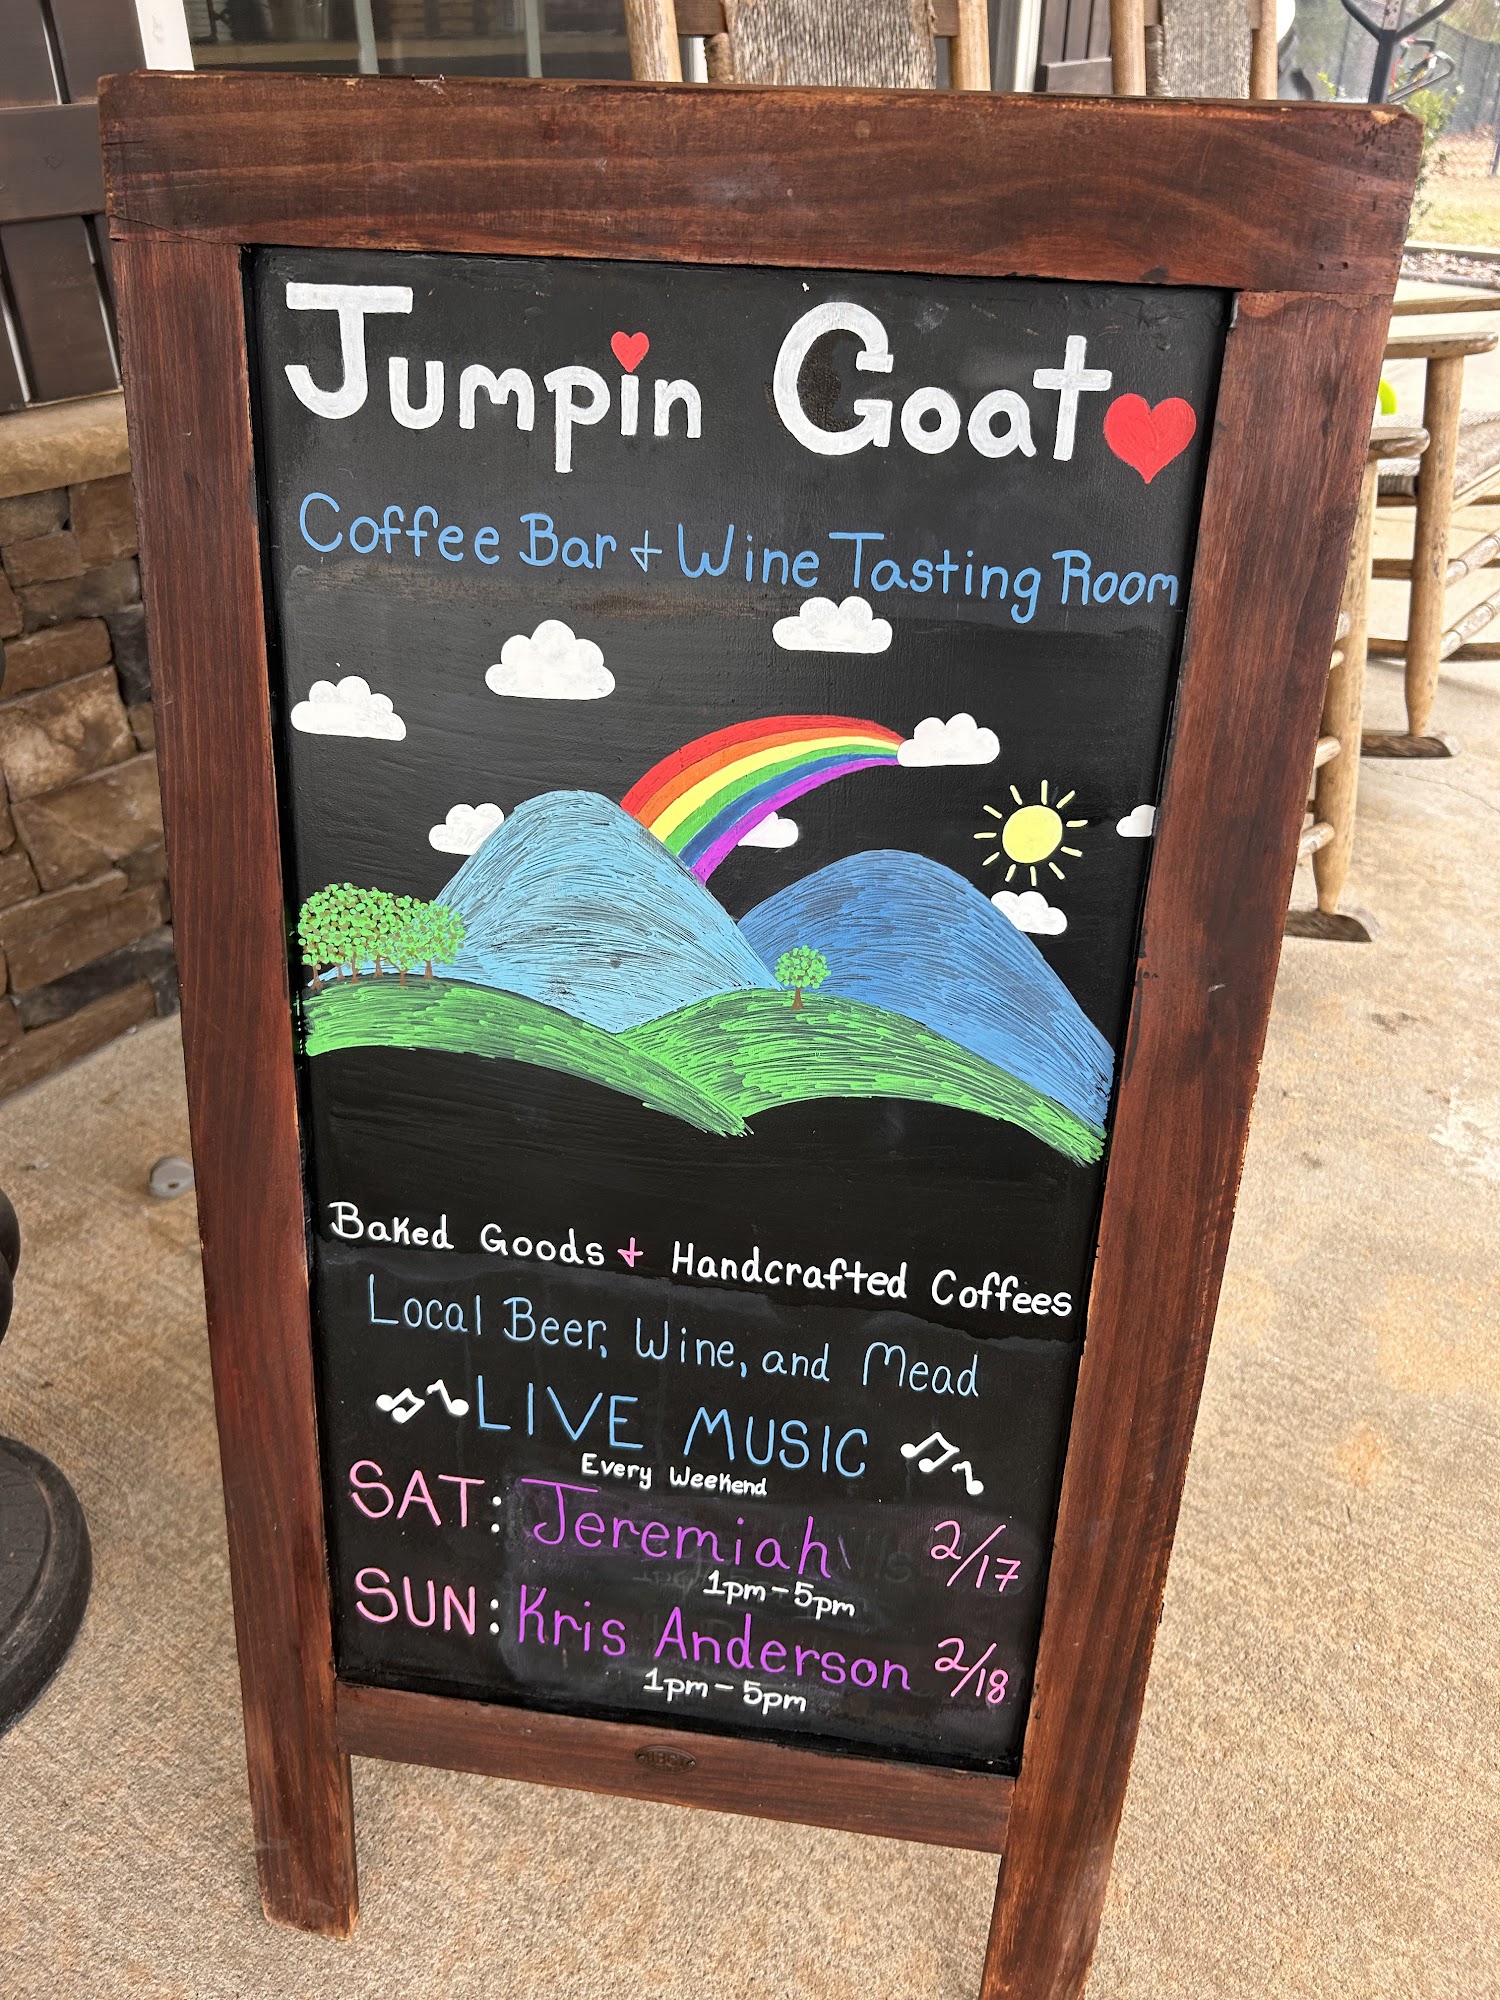 Jumpin Goat
Coffee Bar + Wine Tasting Room
Baked Goods + Handcrafted Coffees
Local Beer, Wine, and Mead
LIVE MUSIC
Every Weekend
SAT: Jeremiah 2/17
1pm-5pm
SUN: Kris Anderson 2/18
1pm-5pm